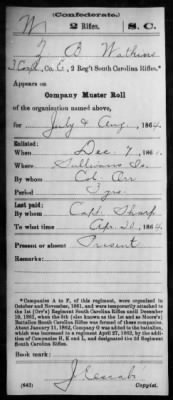 (Confederate.)
W 2 Rifles. S. C.
J B Watkins
3 Corpl, Co. E, 2 Reg't South Carolina Rifles.*
Appears on
Company Muster Roll
of the organization named above,
for July & Aug, 1864.
Enlisted:
When Dec 7, 1861.
Where Sullivans Is.
By whom Col. Orr
Period 3 yrs.
Last paid:
By whom Capt. Sharp
To what time Apr. 30, 1864.
Present or absent Present
Remarks:
*Companies A to F, of this regiment, were organized in
October and November, 1861, and were temporarily attached to
the 1st (Orr's) Regiment South Carolina Rifles until December
Battalion South Carolina Rifles was formed of these companies.
About January 11, 1862, Company G was added to the battalion,
which was increased to a regiment April 27, 1862, by the addi-
tion of Companies H, K and L, and designated the 2d Regiment
South Carolina Rifles.
Book mark:
(642) Copyist.